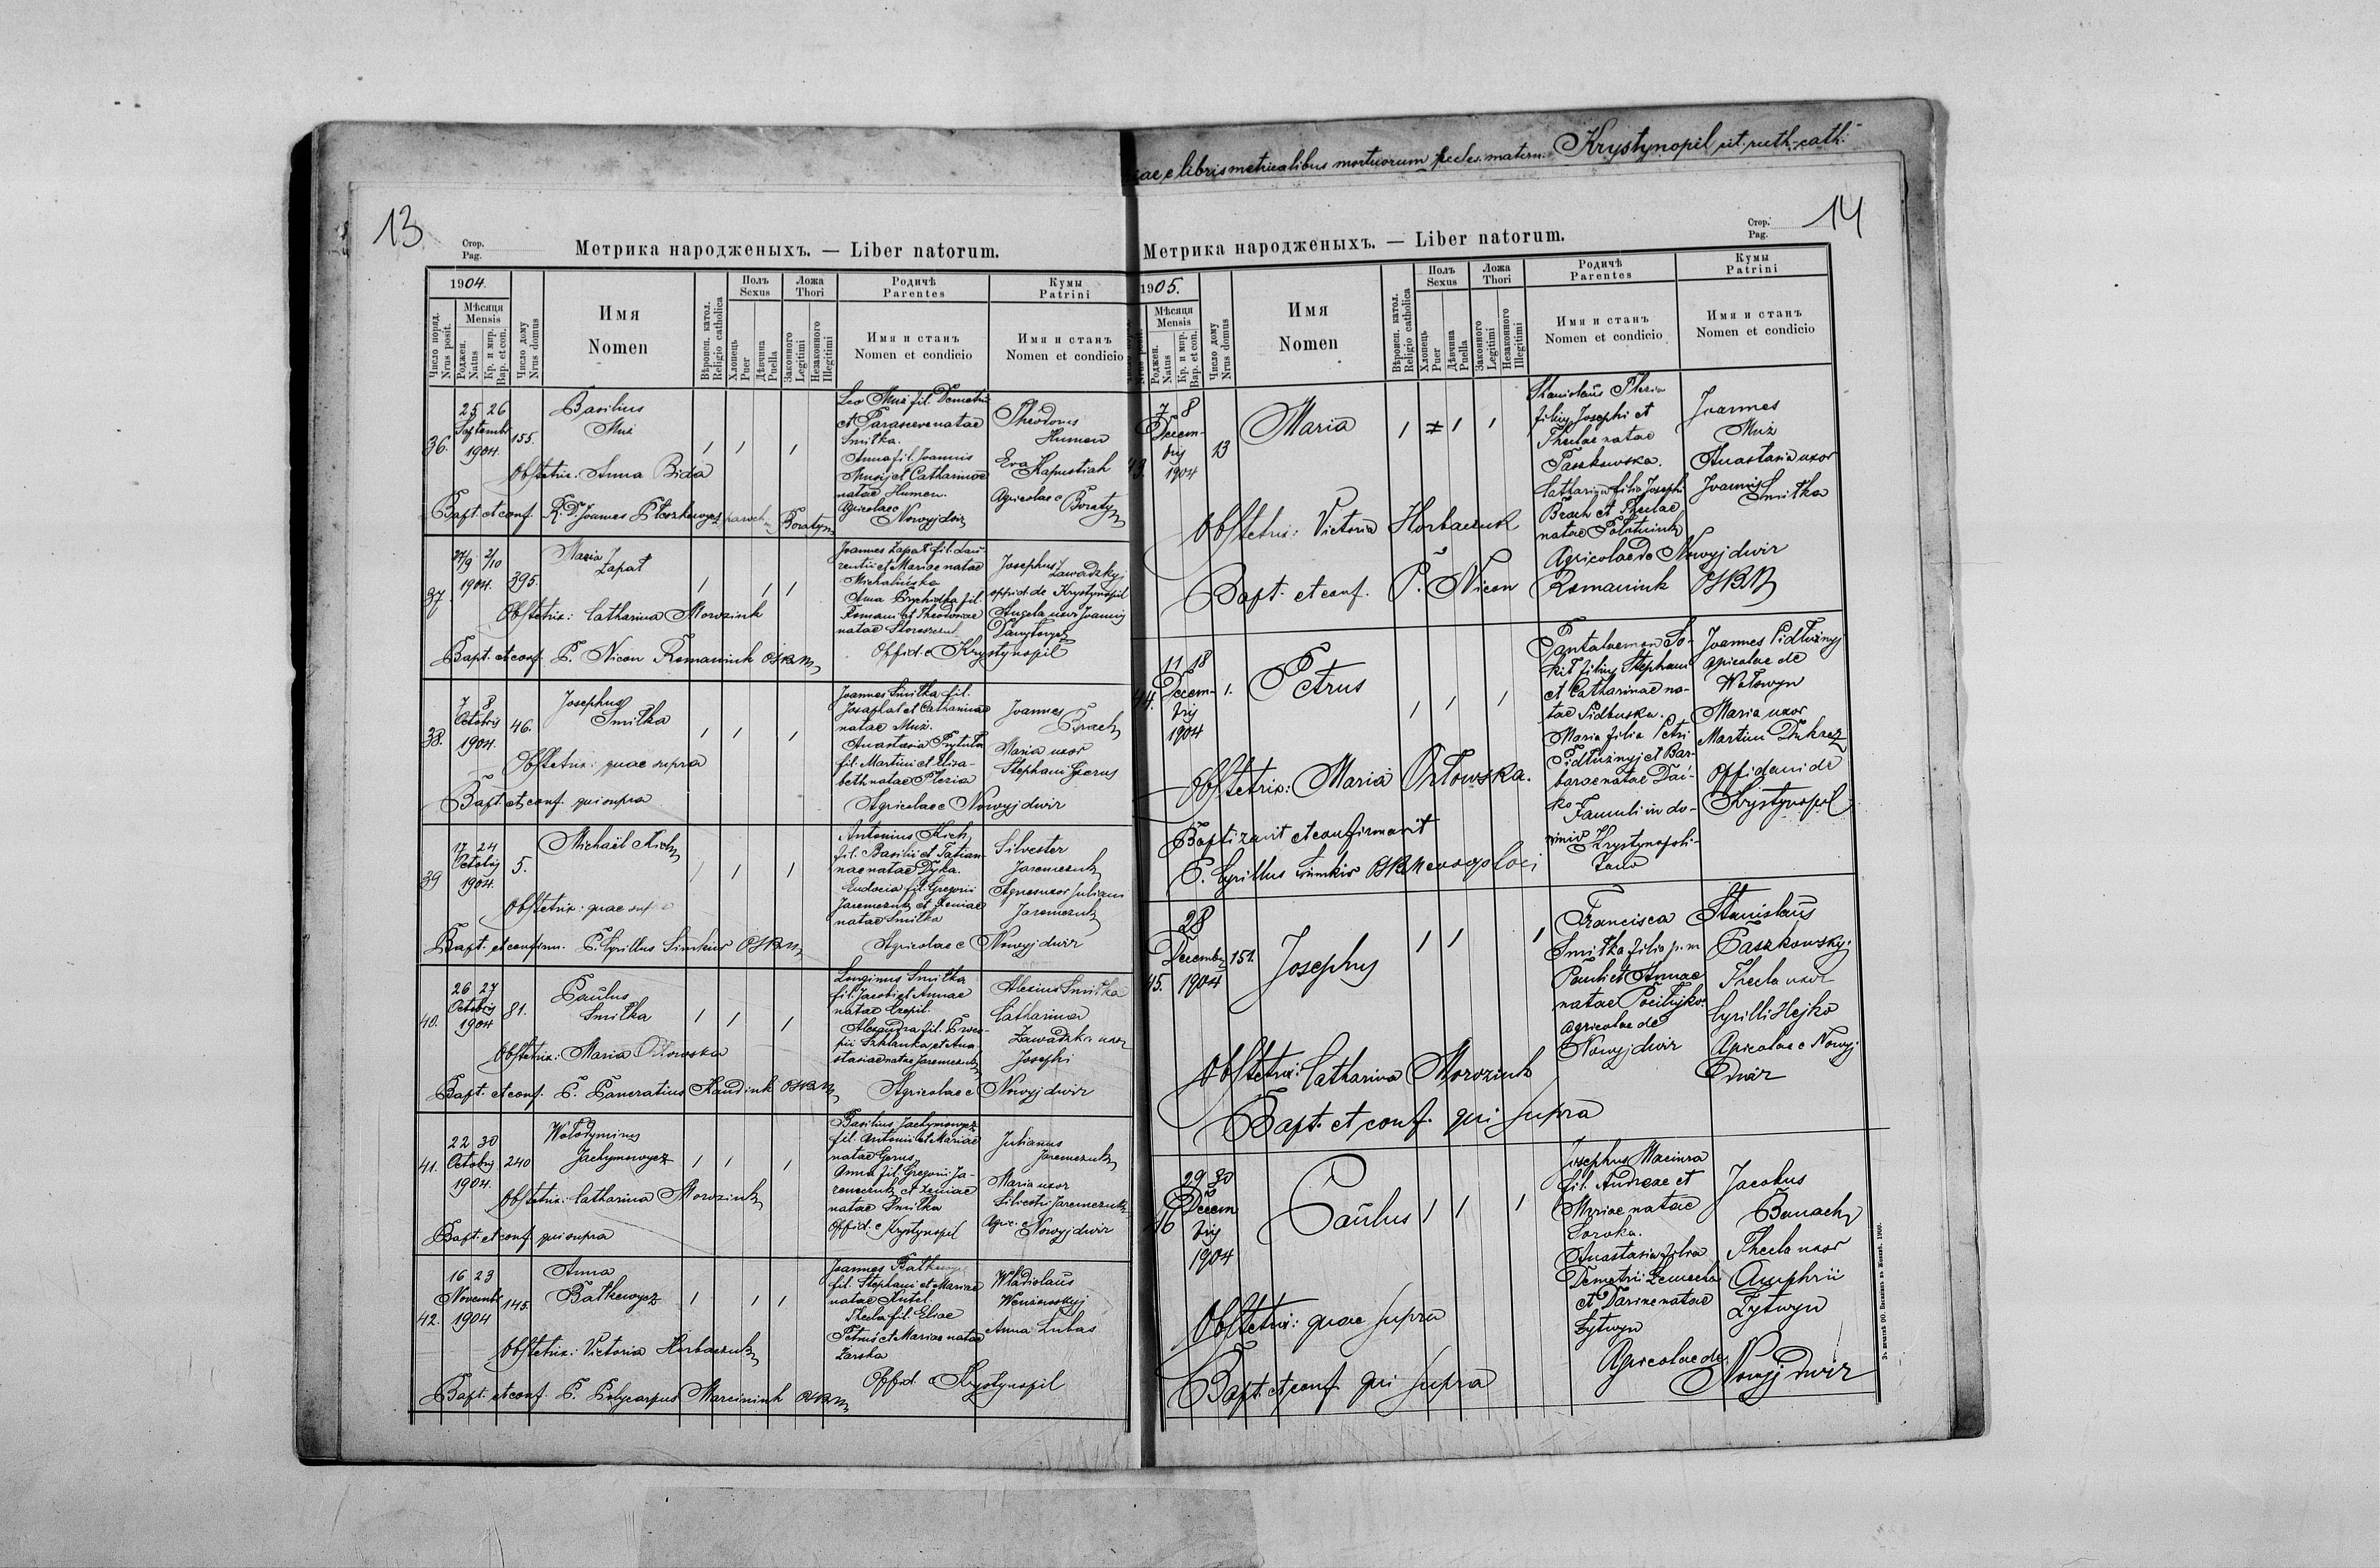 13
Стор.
Pag.
Метрика народженыхъ. — Liber natorum.
1904.
Число поряд.
Nrus posit.
Мѣсяця
Mensis
Роджен.
Natus
Кр. и мир.
Bap. et con.
Число дому
Nrus domus
Имя
Nomen
Вѣроисп. катол.
Religio catholica
Полъ
Sexus
Хлопець
Puer
Дѣвчина
Puella
Ложа
Thori
Законного
Legitimi
Незаконного
Illegitimi
Родичѣ
Parentes
Имя и станъ
Nomen et condicio
Кумы
Patrini
Имя и станъ
Nomen et condicio
36.
25 26
Septembr
1904.
155.
Basilius
Muż
Obstetrix. Anna Bida
Bapt. et conf. R. D. Joannes paroch Boratyn
Leo Muż fil. Demetrii
et Parascevenatae
Smitka.
Anna fil. Joannis
et Catharinae
natae Humen.
Agricolae c
Nowyj dwir
Theodorus
Humen
Eva
Kapustiak
Agricolae c Boratyn
37.
27/9 2/10
1904.
395.
Maria
Zapał
Obstetrix: Catharina Morozink
Bapt. et conf. P. Nicon Romaniuk OSBM
Joannes Zapał fil. Lau-
rentii et Mariae natae
Michalińska
Anna fil.
Romani et Theodorae
natae
Offid. c Krystynopil
Josephus
Zawadzkyj
oppid. de Krystynopil
Angela uxor Joannis
38.
7 8
Octobris
1904.
46.
Josephus
Smitka
Obstetrix: quae supra
Bapt. et conf. qui supra
Joannes Smitka fil.
Josaphat et Catharinae
natae Muż.
Anastasia Prytuła
fil. Martini et Elisa-
beth natae Pleria
Agricolae c Nowyj dwir
Joannes
Brach
Maria uxor
Stephani Gerus
39
17 24
Octobris
1904.
5.
Michaël Kich
Obstetrix: quae
Bapt. et confirm. P. Cyrillus Simkiw OSBM
Antonius Kich
fil. Basilii et Tatian-
nae natae Dyka.
Eudocia fil. Gregorii
Jaremczuk et Xeniae
natae Smitka
Agricolae c Nowyj dwir
Silvester
Jaremczuk
Agnes uxor Juliani
Jaremczuk
40.
26 27
Octobris
1904
81.
Paulus
Smitka
Obstetrix: Maria Orłowska
Bapt. et conf. P. Pancratius Kandiuk OSBM
Longinus Smitka
fil. Jacobi et Annae
natae Czepil.
Alexandra fil. Proco-
pii Szklanka et Ana-
stasiae natae Jaremczuk
Agricolae c Nowyj dwir
Alexius Smitka
Catharina
Zawadzka uxor
Josephi
41.
22 30
Octobris
1904.
240
Wołodymirus
Jachymowycz
Obstetrix: Catharina Morozink
Bapt. et conf. qui supra
Basilius Jachymowycz
fil. Antonii et Mariae
natae Gerus,
Anna fil. Gregorii Ja-
remczuk et Xeniae
natae Smitka
Offid. c Krystynopil
Julianus
Jaremczuk
Maria uxor
Silvestri Jaremczuk
Agric. c Nowyj dwir
42.
16 23
Novembr
1904
145.
Anna
Batkewycz
Obstetrix: Victoria Horbaczuk
Bapt. et conf. P. Polycarpus Marciniuk OSBM
Joannes
fil. Stephani et Mariae
natae Kutel.
Thecla fil. Eliae
Petruś et Mariae natae
Żarska
Offid. c Krystynopil
Władislaus
Anna Lubas
libris metricalibus mortuorum eccles. matern. Krystynopil rit. ruth.-cath.
14
Стор.
Pag.
Метрика народженыхъ. — Liber natorum.
1905.
Мѣсяця
Mensis
Роджен.
Natus
Кр. и мир.
Bap. et con.
Число дому
Nrus domus
Имя
Nomen
Вѣроисп. катол.
Religio catholica
Полъ
Sexus
Хлопець
Puer
Дѣвчина
Puella
Ложа
Thori
Законного
Legitimi
Незаконного
Illegitimi
Родичѣ
Parentes
Имя и станъ
Nomen et condicio
Кумы
Patrini
Имя и станъ
Nomen et condicio
7 8
Decem-
bris
1904
13
Maria
Obstetrix: Victoria Horbaczuk
Bapt. et conf. P. Nicon Romaniuk OSBM
Stanislaus Pleria
filius Josephi et
Theclae natae
Paszkowska.
Catharina filia Josephi
Brach et Theclae
natae
Agricolae de Nowyj dwir
Joannes
Muż
Anastasia uxor
Joannis
Smitka
44.
11 18
Decem-
bris
1904
1.
Petrus
Obstetrix: Maria Orłowska.
Baptizavit et confirmavit
P. Cyrillus Simkiw OSBM
Pantaleemon So-
kił filius Stephani
et Catharinae na-
tae Pidbuska.
Maria filia Petri
Pidłużnyj et Bar-
barae natae Daś-
ko Famuli in do-
minio Krystynopoli-
tano
Joannes Pidłużnyj
agricolae de
Wołswyn
Maria uxor
Martini
Offidani de
Krystynopol
45.
28
Decembr
1904
151.
Josephus
Obstetrix: Catharina Morozink
Bapt. et conf. qui supra
Francisca
Smitka filia p. m
Pauli et Annae
natae
agricolae de
Nowyj dwir
Stanislaus
Paszkowsky.
Thecla uxor
Cyrilli Hejko
Agricolae c Nowyj
Dwir
46
29 30
Decem
bris
1904
Paulus
Obstetrix: quae supra
Bapt. et conf. qui supra
Josephus Maciura
fil. Andreae et
Mariae natae
Soroka.
Anastasia filia
Demetrii
et Darinae natae
Łytwyn
Agricolae de
Nowyj dwir
Jacobus
Banach
Thecla uxor
Onuphrii
Łytwyn